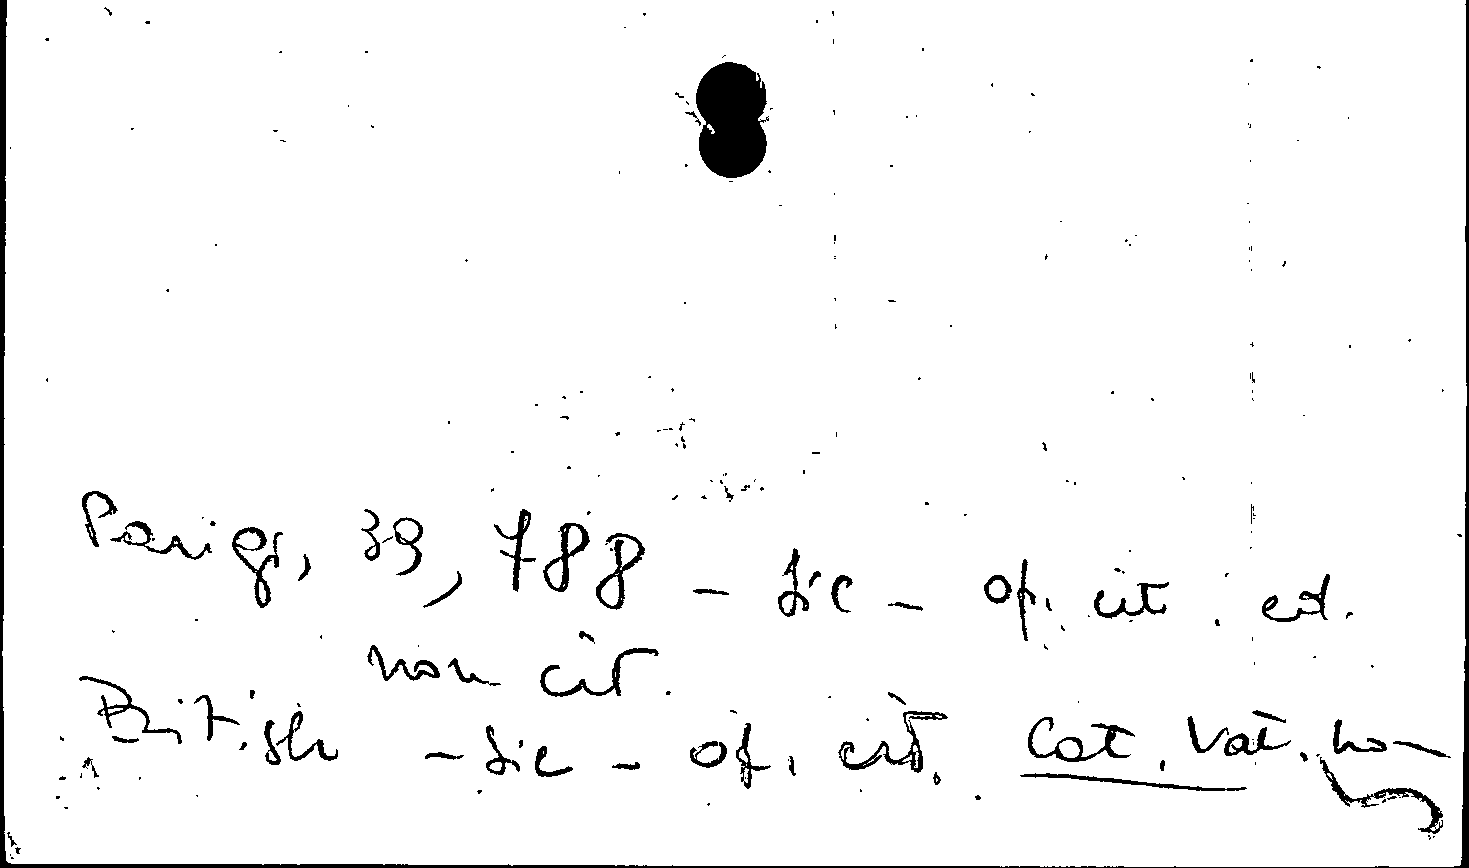 Parigi, 39, 788 - sic - op. cit. ed.
non cit.
British - sic - op. cit. Cat. Vat. no